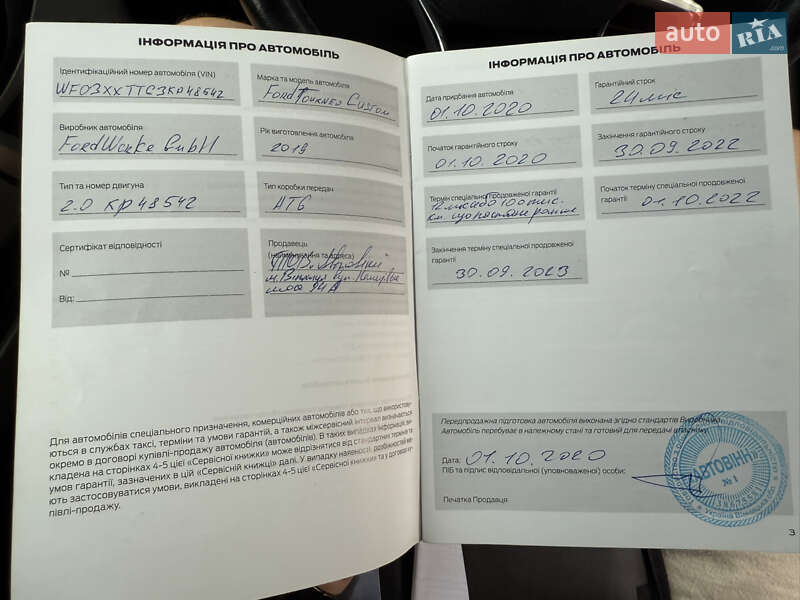 auto RIA.com
ІНФОРМАЦІЯ ПРО АВТОМОБІЛЬ
Ідентифікаційний номер автомобіля (VIN)
WF03XXTTG3KP48542
Марка та модель автомобіля
Ford Tourneo Custom
Виробник автомобіля
Ford Werke GmbH
Рік виготовлення автомобіля
2019
Тип та номер двигуна
2.0 KP48542
Тип коробки передач
АТ6
Сертифікат відповідності
№
Від:
Продавець
(найменування та адреса)
м. Вінниця вул.
Для автомобілів спеціального призначення, комерційних автомобілів або тих, що використову-
ються в службах таксі, терміни та умови гарантій, а також міжсервісний інтервал визначається
окремо в договорі купівлі-продажу автомобіля (автомобілів). В таких випадках інформація, ви-
кладена на сторінках 4-5 цієї «Сервісної книжки» може відрізнятися від стандартних термінів та
умов гарантії, зазначених в цій «Сервісній книжці» далі. У випадку наявності розбіжностей ма-
ють застосовуватися умови, викладені на сторінках 4-5 цієї «Сервісної книжки» та у договорі ку-
півлі-продажу.
ІНФОРМАЦІЯ ПРО АВТОМОБІЛЬ
Дата придбання автомобіля
01.10.2020
Гарантійний строк
24 міс
Початок гарантійного строку
01.10.2020
Закінчення гарантійного строку
30.09.2022
Термін спеціальної продовженої гарантії
12 міс або 100 тис.
км. що настане раніше
Початок терміну спеціальної продовженої
гарантії 01.10.2022
Закінчення терміну спеціальної продовженої
гарантії
30.09.2023
Передпродажна підготовка автомобіля виконана згідно стандартів Виробника.
Автомобіль перебуває в належному стані та готовий для передачі власнику.
Дата: 01.10.2020
ПІБ та підпис відповідальної (уповноваженої) особи:
Печатка Продавця
АВТОВІНН
№ 1
3